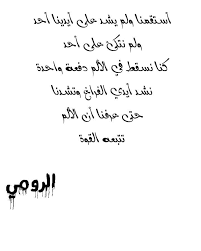 أستقمنا ولم يشد على أيدينا أحد
ولم نتكئ على أحد
كنا نسقط في الألم دفعة واحدة
نشد أيدي الفراغ وتشدنا
حتى عرفنا أن الألم
تتبعه القوة
الرومي